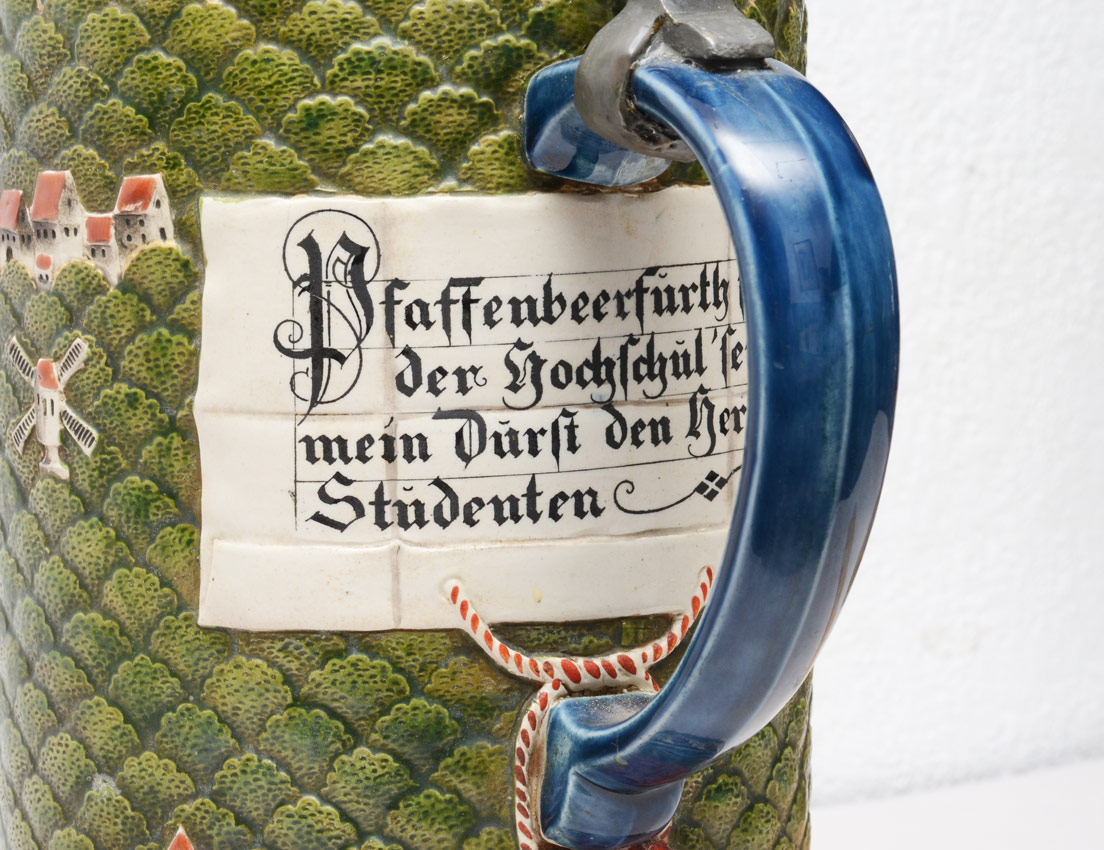 Pfaffenbeerfurth
der Hochschul' se
mein Durst den Her
Studenten